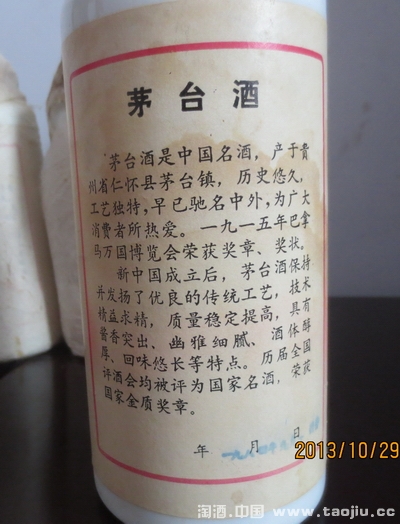 茅台酒
茅台酒是中国名酒，产于贵
州省仁怀县茅台镇，历史悠久，
工艺独特，早已驰名中外，为广大
消费者所热爱。一九一五年巴拿
马万国博览会荣获奖章、奖状。
新中国成立后，茅台酒保持
并发扬了优良的传统工艺，技术
精益求精，质量稳定提高，具有
酱香突出、幽雅细腻、酒体醇
厚、回味悠长等特点。历届全国
评酒会均被评为国家名酒，荣获
国家金质奖章。
年 月 日
一九八四年
2013/10/29
淘酒.中国 www.taojiu.cc